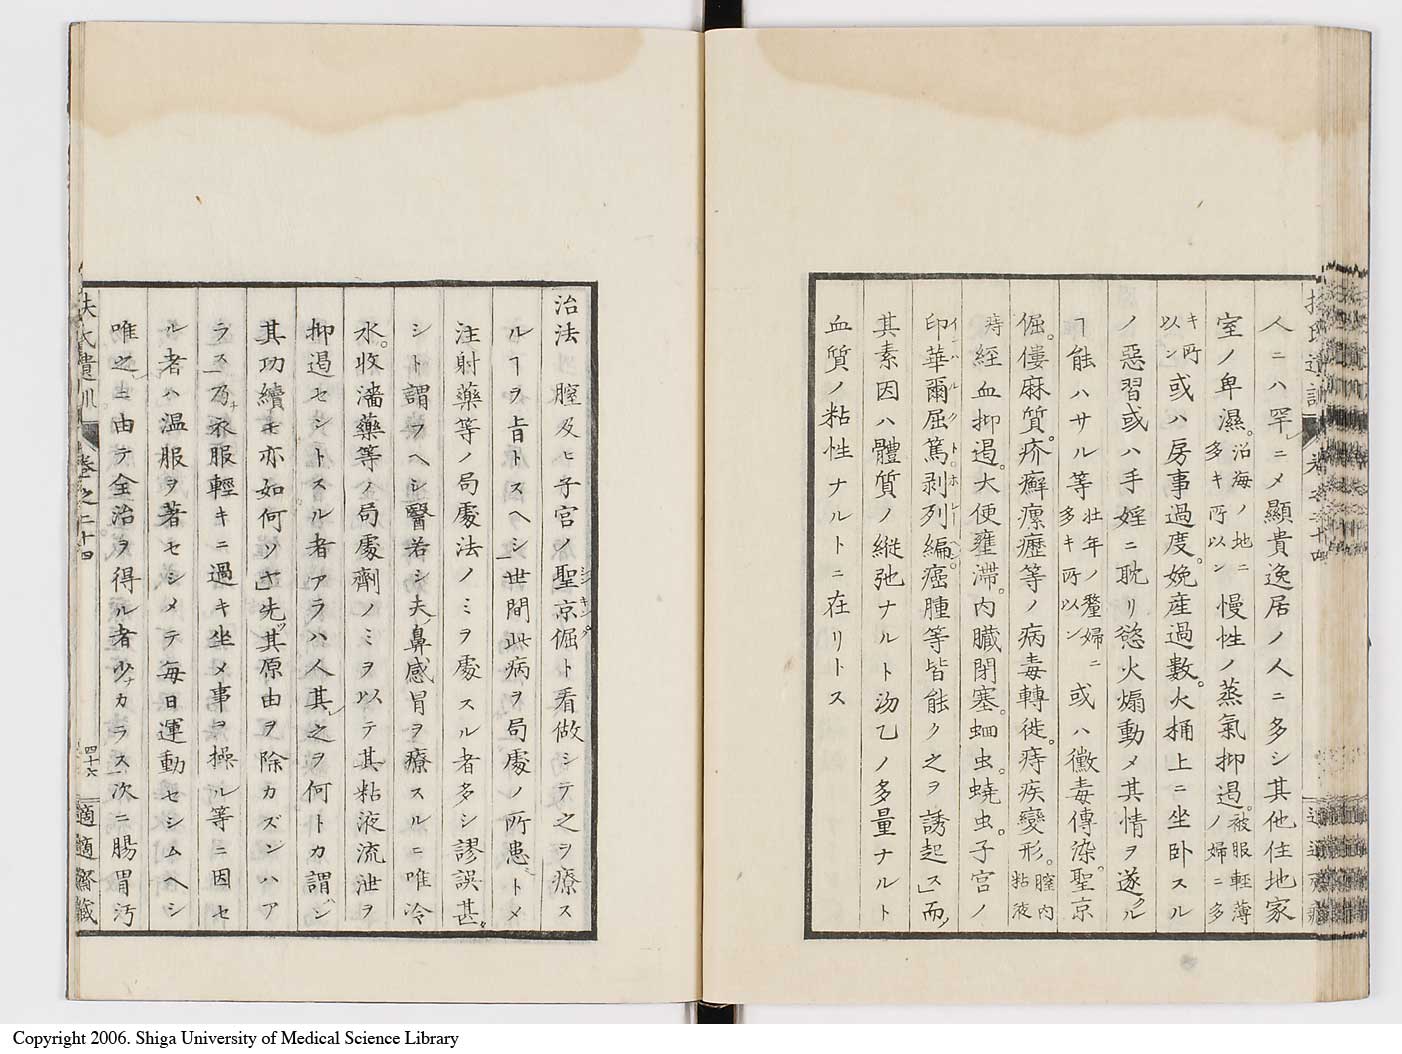 人ニハ罕ニメ顯貴逸居ノ人ニ多シ其他住地家
室ノ卑濕。沿海ノ地ニ多キ所以ン慢性ノ蒸氣抑遏。被服輕薄ノ婦ニ多
キ所以ン或ハ房事過度。娩産過數。火桶上ニ坐卧スル
ノ惡習或ハ手婬ニ耽リ慾火煽動メ其情ヲ遂クル
ヿ能ハサル等壮年ノ孀婦ニ多キ所以ン或ハ黴毒傳染。聖京
倔。僂麻質。疥癬瘰癧等ノ病毒轉徙。痔疾變形。膣内粘液
痔經血抑遏。大便壅滞。内臓閉塞。蛔虫。蟯虫。子宮ノ
印華爾屈篤剥列編。癌腫等皆能ク之ヲ誘起ス」而ノ
其素因ハ體質ノ縦弛ナルト沕乙ノ多量ナルト
血質ノ粘性ナルトニ在リトス
治法 膣及ヒ子宮ノ聖京倔ト看做シテ之ヲ療ス
ルヿヲ旨トスヘシ」世間此病ヲ局處ノ所患トメ
注射藥等ノ局處法ノミヲ處スル者多シ謬誤甚
シト謂フヘシ醫若シ夫ノ鼻感冒ヲ療スルニ唯冷
水。收濇藥等ノ局處劑ノミヲ以テ其粘液流泄ヲ
抑遏セシトスル者アラハ人其之ヲ何トカ謂ハン
其功績モ亦如何ソヤ」先ツ其原由ヲ除カズンハア
ラス」乃チ衣服輕キニ過キ坐メ事ヲ操ル等ニ因セ
ル者ハ温服ヲ著セシメテ毎日運動セシムヘシ
唯之ニ由テ全治ヲ得ル者少ナカラス」次ニ腸胃汚
扶氏遺訓 卷之二十四 四十六 適適齋藏